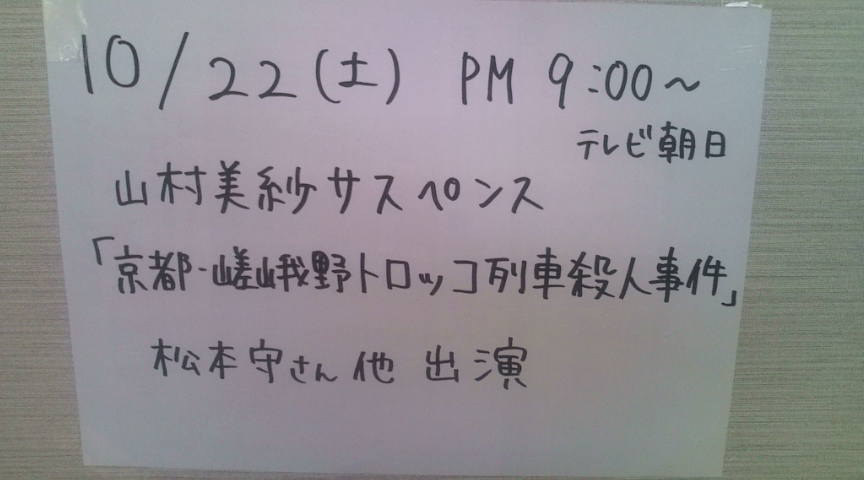 10/22(土) PM 9:00～
テレビ朝日
山村美紗サスペンス
「京都-嵯峨野トロッコ列車殺人事件」
松本守さん他 出演